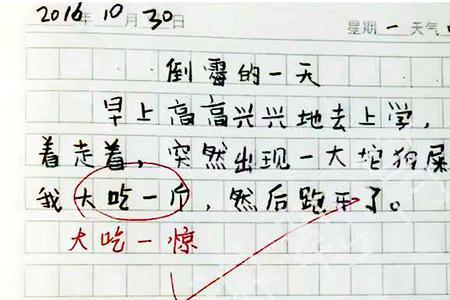 2016年10月30日 星期一 天气
倒霉的一天
早上高高兴兴地去上学,
着走着,突然出现一大坨狗屎
我大吃一斤,然后跑开了。
大吃一惊